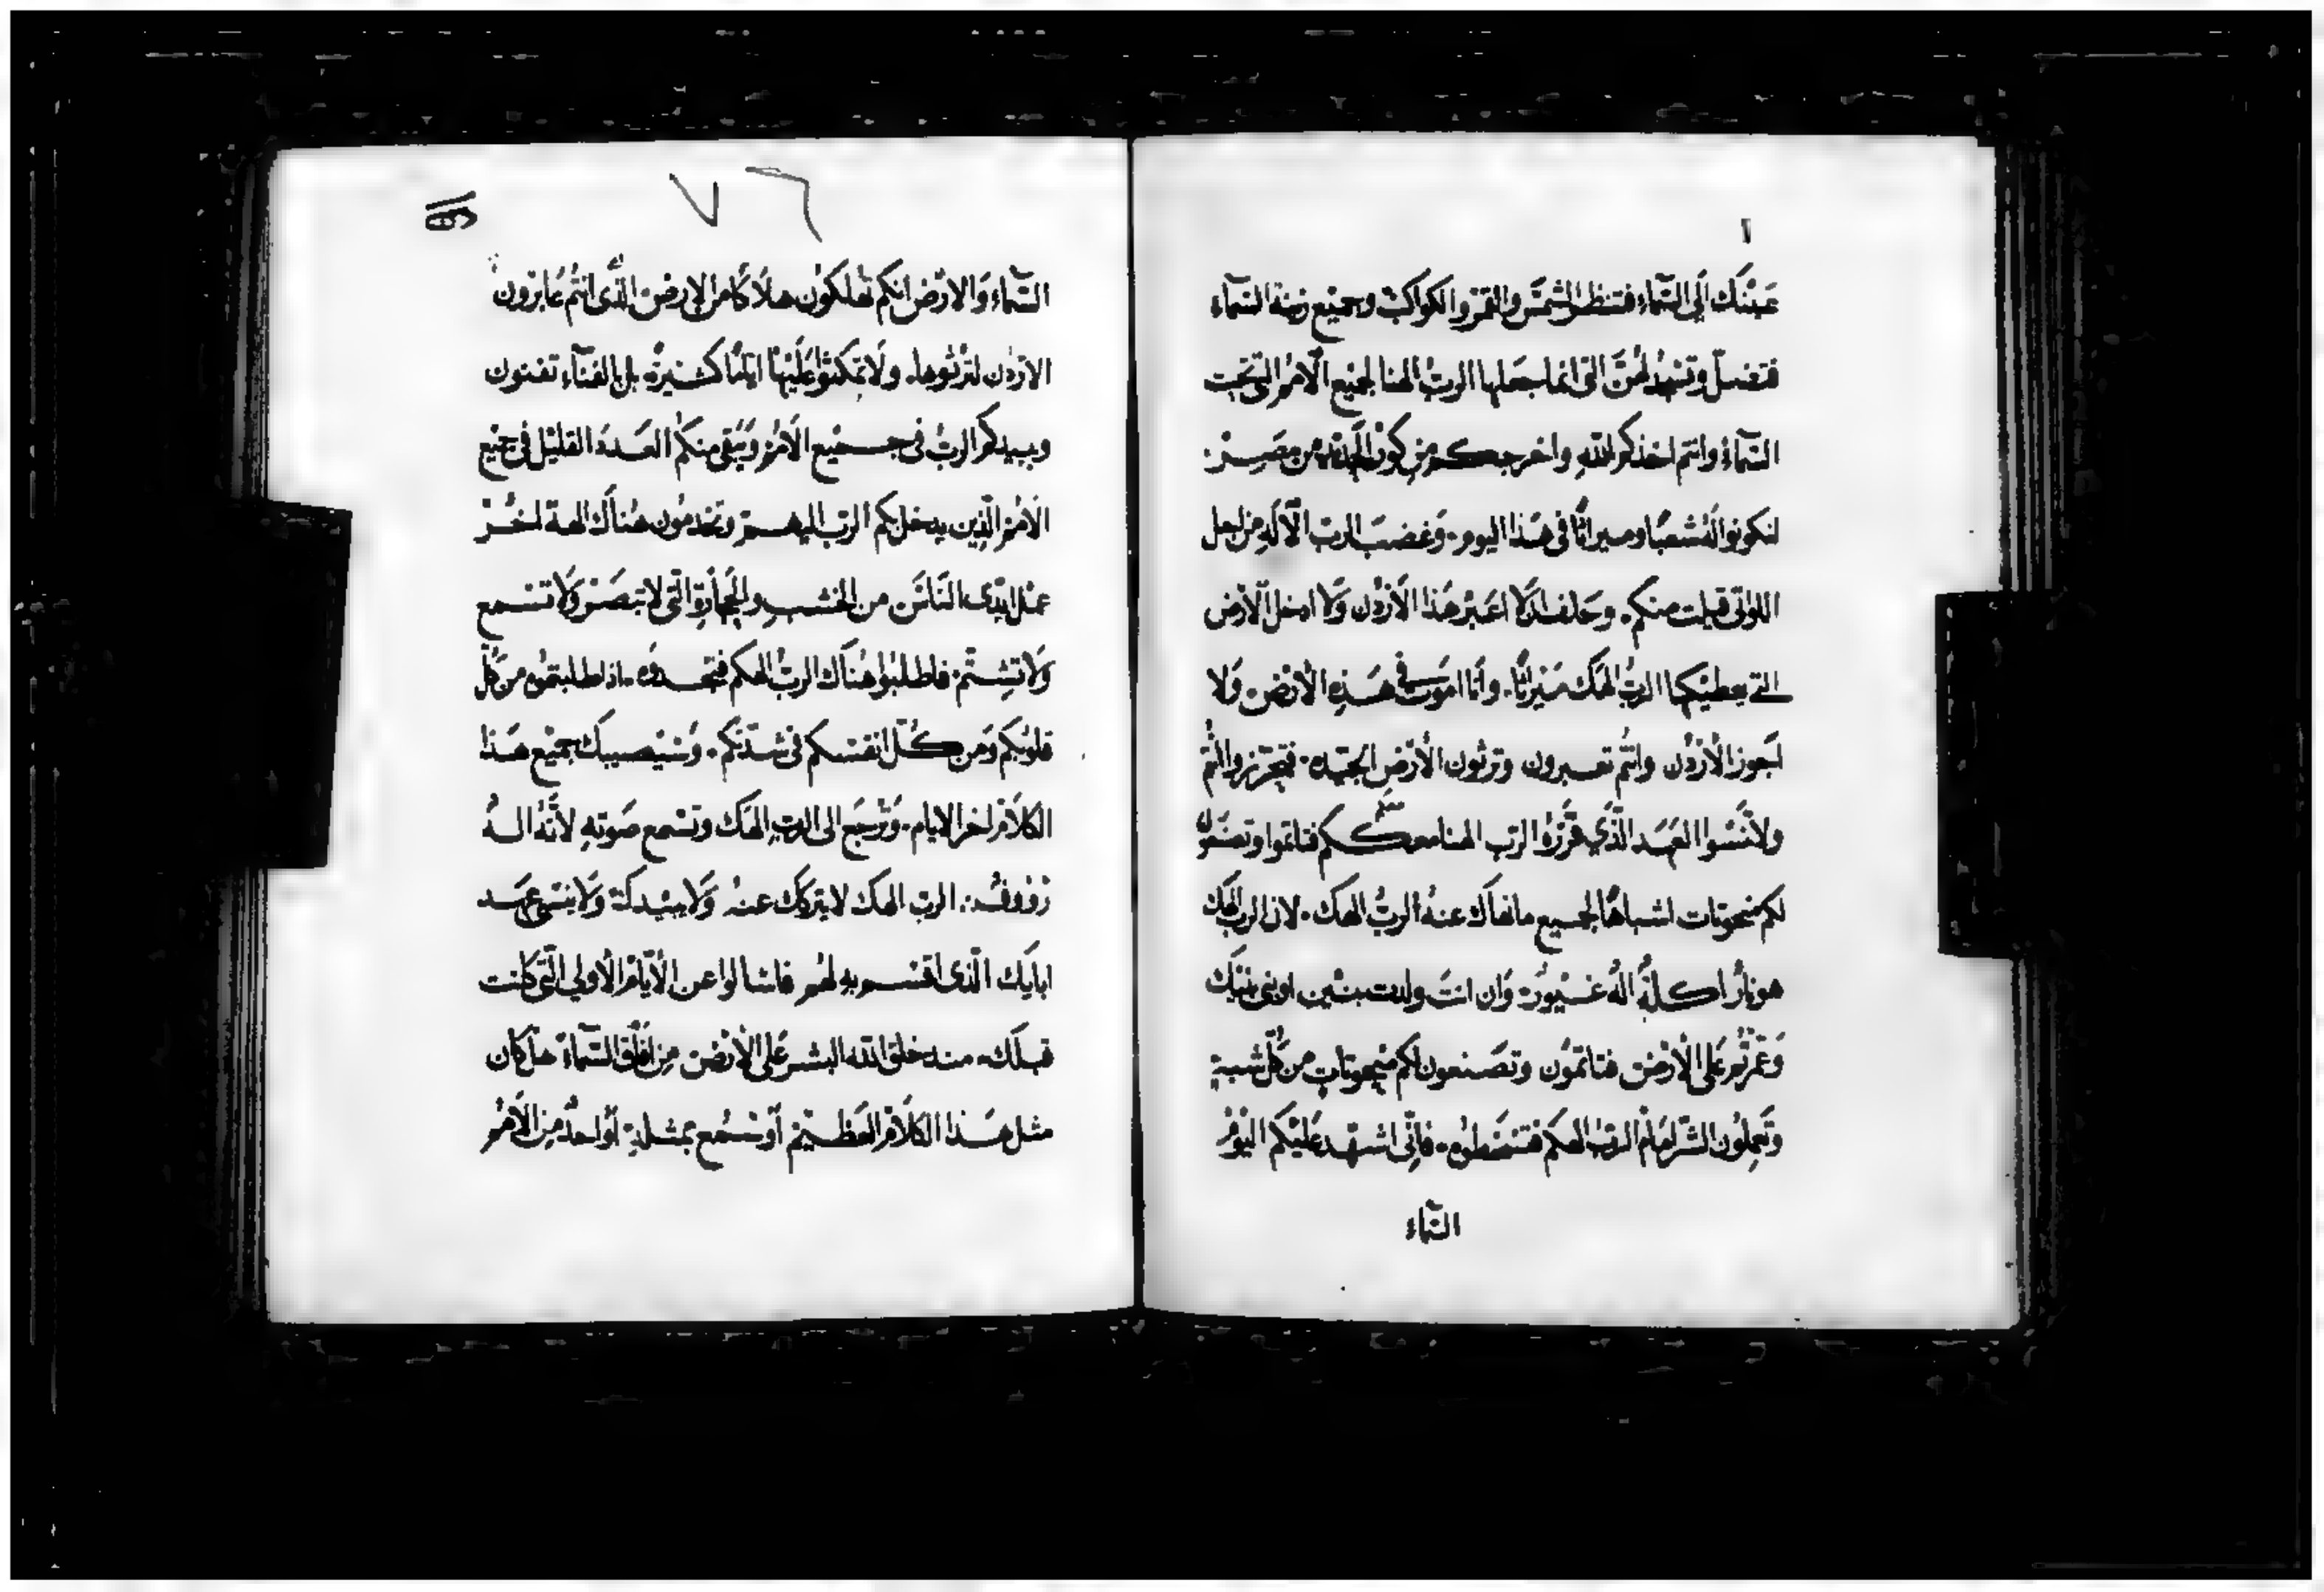 ١
عينك الى السماء فتنظر الشمس والقمر والكواكب وجميع زينة السماء
فتضل وتسجد لهن التى انما جعلها الرب الهنا لجميع الامم التى تحت
السماء وانتم اخذكم الله واخرجكم من كور الحديد من مصر
لتكونوا له شعبا وميراثا فى هذا اليوم. وغضب الرب الاله من اجل
اللواتى قيلت منكم. وحلف ان لا اعبر هذا الاردن ولا ادخل الارض
التى يعطيكها الرب الهك ميراثا. وانا اموت فى هذه الارض. ولا
اجوز الاردن وانتم تعبرون وترثون الارض الجيدة. فتحرزوا انتم
ولا تنسوا العهد الذي قرره الرب الهنا معكم فتاثموا وتصنعون
لكم منحوتات اشباها لجميع ما نهاك عنه الرب الهك. لان الرب الهك
هو نار اكلة اله غيور. وان انت ولدت بنين او بنى بنيك
وعمرتم على الارض فتاثمون وتصنعون لكم منحوتات من كل شبه
وتعملون الشر امام الرب الهكم فتسخطوه. فانى اشهد عليكم اليوم
السماء
٧٦
السماء والارض انكم تهلكون هلاكا من الارض الذى انتم عابرون
الاردن لترثوها. ولا تمكثوا عليها اياما كثيرة. بل بالفناء تفنون
ويبيدكم الرب فى جميع الامم ويبقى منكم العدد القليل فى جميع
الامم الذين يدخلكم الرب اليهم وتخدمون هناك الهة اخر
عمل ايدى الناس من الخشب والحجارة التى لا تبصر ولا تسمع
ولا تشتم. فاطلبوا هناك الرب الهكم فتجدوه. اذا طلبتموه من كل
قلوبكم ومن كل انفسكم فى شدتكم. وسيصيبك جميع هذا
الكلام اخر الايام. وترجع الى الرب الهك وتسمع صوته لانه اله
رووف. الرب الهك لا يتركك عنه ولا يبيدك. ولا ينسى عهد
ابايك الذى اقسم به لهم فاسالوا عن الايام الاولى التى كانت
قبلك. منذ خلق الله البشر على الارض من افاق السماء هل كان
مثل هذا الكلام العظيم او سمع بمثله او احد من الامم